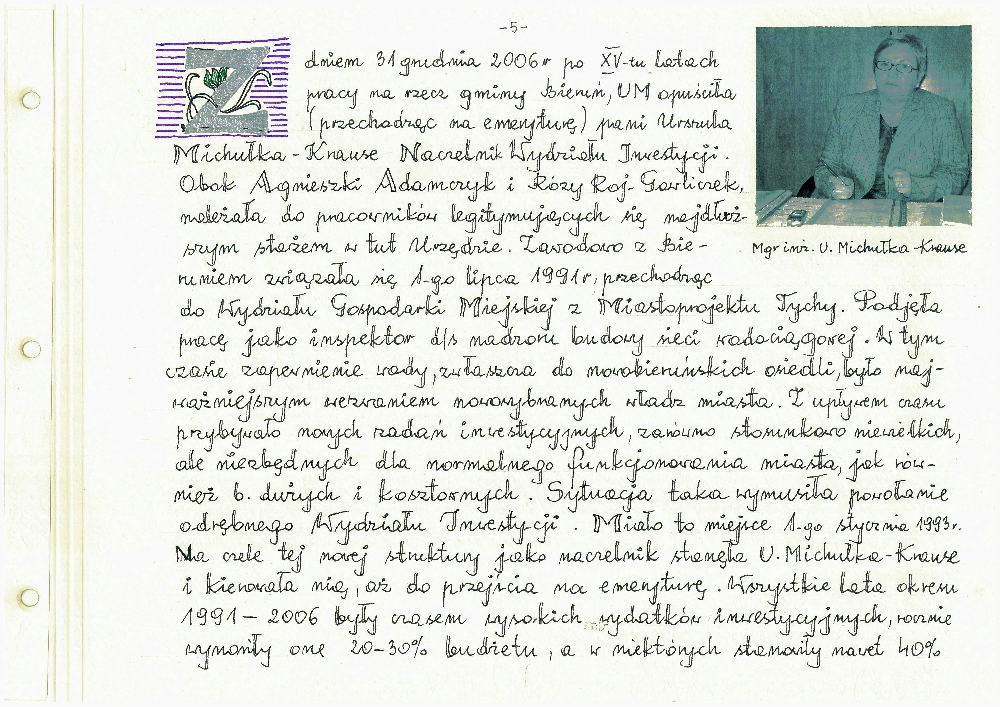 -5-
Z dniem 31 grudnia 2006r po XV-tu latach
pracy na rzecz gminy Bieruń, UM opuściła
(przechodząc na emeryturę) pani Urszula
Michułka-Krause Naczelnik Wydziału Inwestycji.
Obok Agnieszki Adamczyk i Róży Roj-Garliczek,
należała do pracowników legitymujących się najdłuż-
szym stażem w tut Urzędzie. Zawodowo z Bie-
runiem związała się 1-go lipca 1991r, przechodząc
Mgr inż. U. Michułka-Krause
do Wydziału Gospodarki Miejskiej z Miastoprojektu Tychy. Podjęła
pracę jako inspektor d/s nadzoru budowy sieci wodociągowej. W tym
czasie zapewnienie wody, zwłaszcza do nowobieruńskich osiedli, było naj-
ważniejszym wezwaniem nowowybranych władz miasta. Z upływem czasu
przybywało nowych zadań inwestycyjnych, zarówno stosunkowo niewielkich,
ale niezbędnych dla normalnego funkcjonowania miasta, jak rów-
nież b. dużych i kosztownych. Sytuacja taka wymusiła powołanie
odrębnego Wydziału Inwestycji. Miało to miejsce 1-go stycznia 1993r.
Na czele tej nowej struktury jako naczelnik stanęła U. Michułka-Krause
i kierowała nią, aż do przejścia na emeryturę. Wszystkie lata okresu
1991-2006 były czasem wysokich wydatków inwestycyjnych, rocznie
wynosiły one 20-30% budżetu, a w niektórych stanowiły nawet 40%